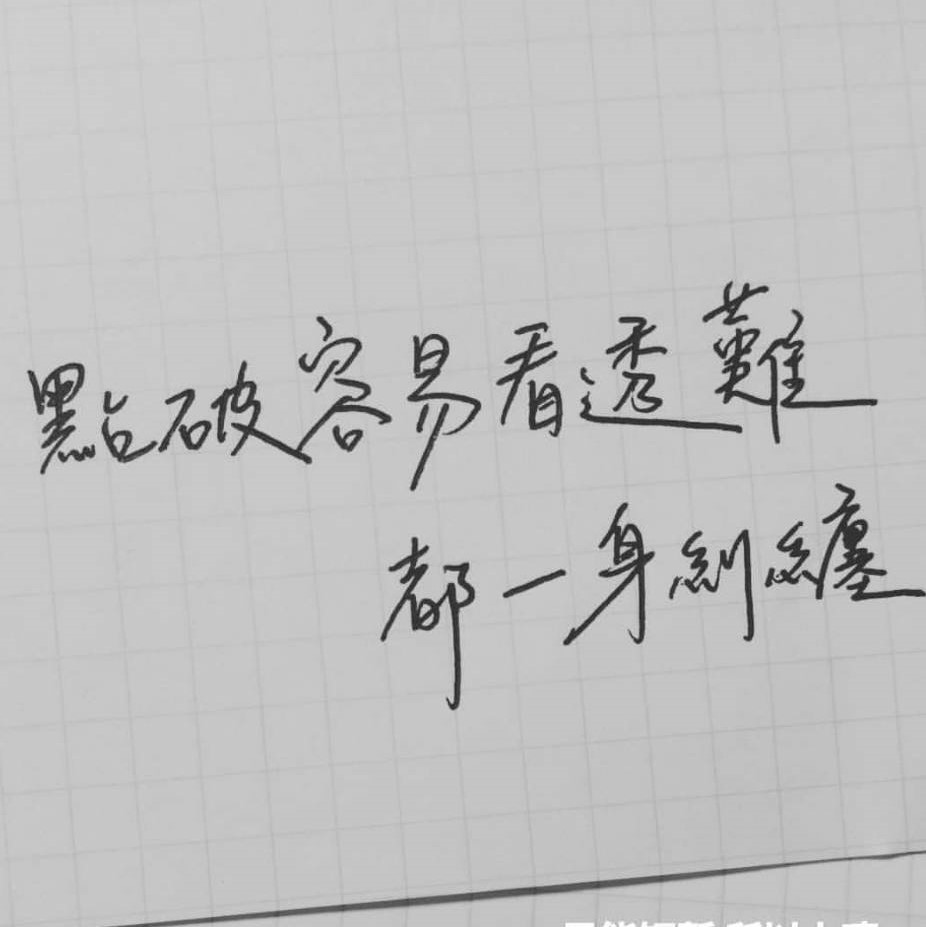 點破容易看透難
都一身糾纏